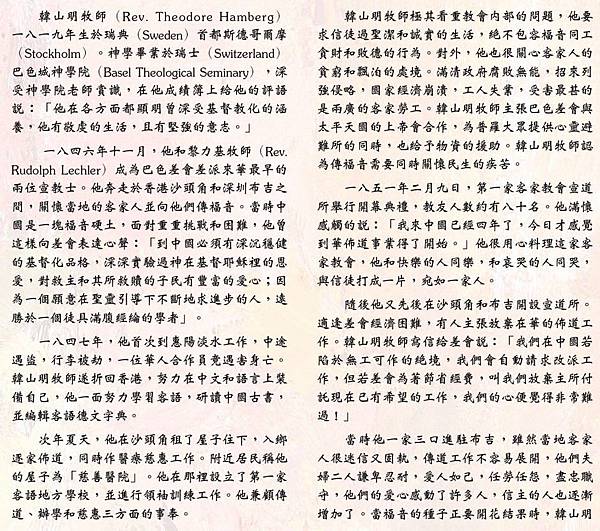 韓山明牧師（Rev. Theodore Hamberg）
一八一九年生於瑞典（Sweden）首都斯德哥爾摩
（Stockholm）。神學畢業於瑞士（Switzerland）
巴色城神學院（Basel Theological Seminary），深
受神學院老師賞識，在他成績簿上給他的評語
說：「他在各方面都顯明曾深受基督教化的涵
養，他有敬虔的生活，且有堅強的意志。」
一八四六年十一月，他和黎力基牧師（Rev.
Rudolph Lechler）成為巴色差會差派來華最早的
兩位宣教士。他奔走於香港沙頭角和深圳布吉之
間，關懷當地的客家人並向他們傳福音。當時中
國是一塊福音硬土，面對重重挑戰和困難，他曾
這樣向差會表達心聲：「到中國必須有深沉穩健
的基督化品格，深深實驗過神在基督耶穌裡的恩
愛，對救主和其所救贖的子民有豐富的愛心；因
為一個願意在聖靈引導下不斷地求進步的人，遠
勝於一個徒具滿腹經綸的學者」。
一八四七年，他首次到惠陽淡水工作，中途
遇盜，行李被劫，一位華人合作員竟遇害身亡。
韓山明牧師遂折回香港，努力在中文和語言上裝
備自己，他一面努力學習客語，研讀中國古書，
並編輯客語德文字典。
次年夏天，他在沙頭角租了屋子住下，入鄉
逐家佈道，同時作醫療慈惠工作。附近居民稱他
的屋子為「慈善醫院」。他在那裡設立了第一家
客語地方學校，並進行領袖訓練工作。他兼顧傳
道、辦學和慈惠三方面的事奉。
韓山明牧師極其看重教會內部的問題，他要
求信徒過聖潔和誠實的生活，絕不包容福音同工
貪財和敗德的行為。對外，他也很關心客家人的
貧窮和飄泊的處境。滿清政府腐敗無能，招來列
強侵略，國家經濟崩潰，工人失業，受害最甚的
是兩廣的客家勞工。韓山明牧師主張巴色差會與
太平天國的上帝會合作，為普羅大眾提供心靈避
難所的同時，也給予物資的援助。韓山明牧師認
為傳福音需要同時關懷民生的疾苦。
一八五一年二月九日，第一家客家教會宣道
所舉行開幕典禮，教友人數約有八十名。他滿懷
感觸的說：「我來中國已經四年了，今日才感覺
到華佈道事業得了開始。」他很用心料理這家客
家教會，他和快樂的人同樂，和哀哭的人同哭，
與信徒打成一片，宛如一家人。
隨後他又先後在沙頭角和布吉開設宣道所。
適逢差會經濟困難，有人主張放棄在華的佈道工
作。韓山明牧師寫信給差會說：「我們在中國若
陷於無工可作的絕境，我們會自動請求改派工
作，但若差會為著節省經費，叫我們放棄主所付
託現在已有希望的工作，我們的心便覺得非常難
過！」
當時他一家三口進駐布吉，雖然當地客家
人很迷信又固執，傳道工作不容易展開，他們夫
婦二人謙卑忍耐，愛人如己，任勞任怨，盡忠職
守，他們的愛心感動了許多人，信主的人也逐漸
增加了。當福音的種子正要開花結果時，韓山明